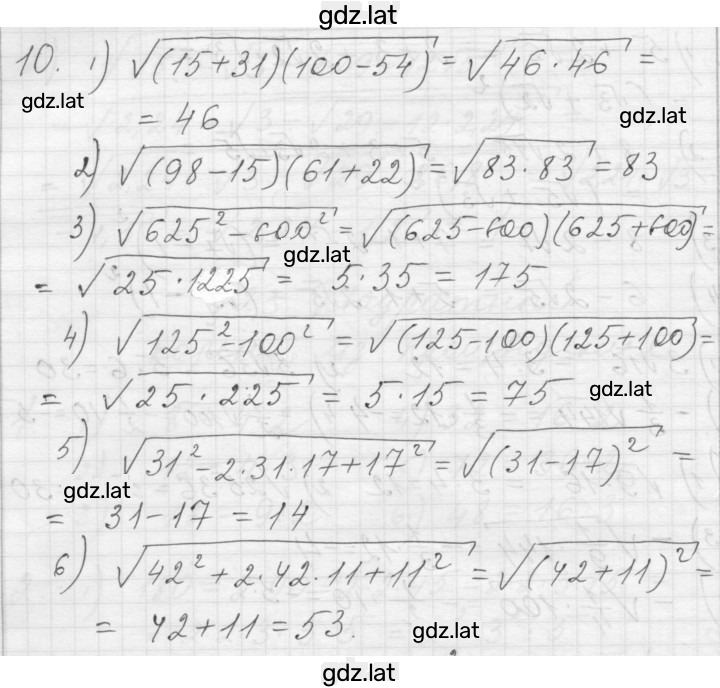 gdz.lat
10. 1) √(15+31)(100-54) = √46·46 =
gdz.lat
= 46
gdz.lat
2) √(98-15)(61+22) = √83·83 = 83
3) √625²-600² = √(625-600)(625+600) =
gdz.lat
= √25·1225 = 5·35 = 175
4) √125²-100² = √(125-100)(125+100) =
= √25·225 = 5·15 = 75
gdz.lat
5) √31²-2·31·17+17² = √(31-17)² =
gdz.lat
= 31-17 = 14
6) √42²+2·42·11+11² = √(42+11)² =
= 42+11 = 53.
gdz.lat
gdz.lat